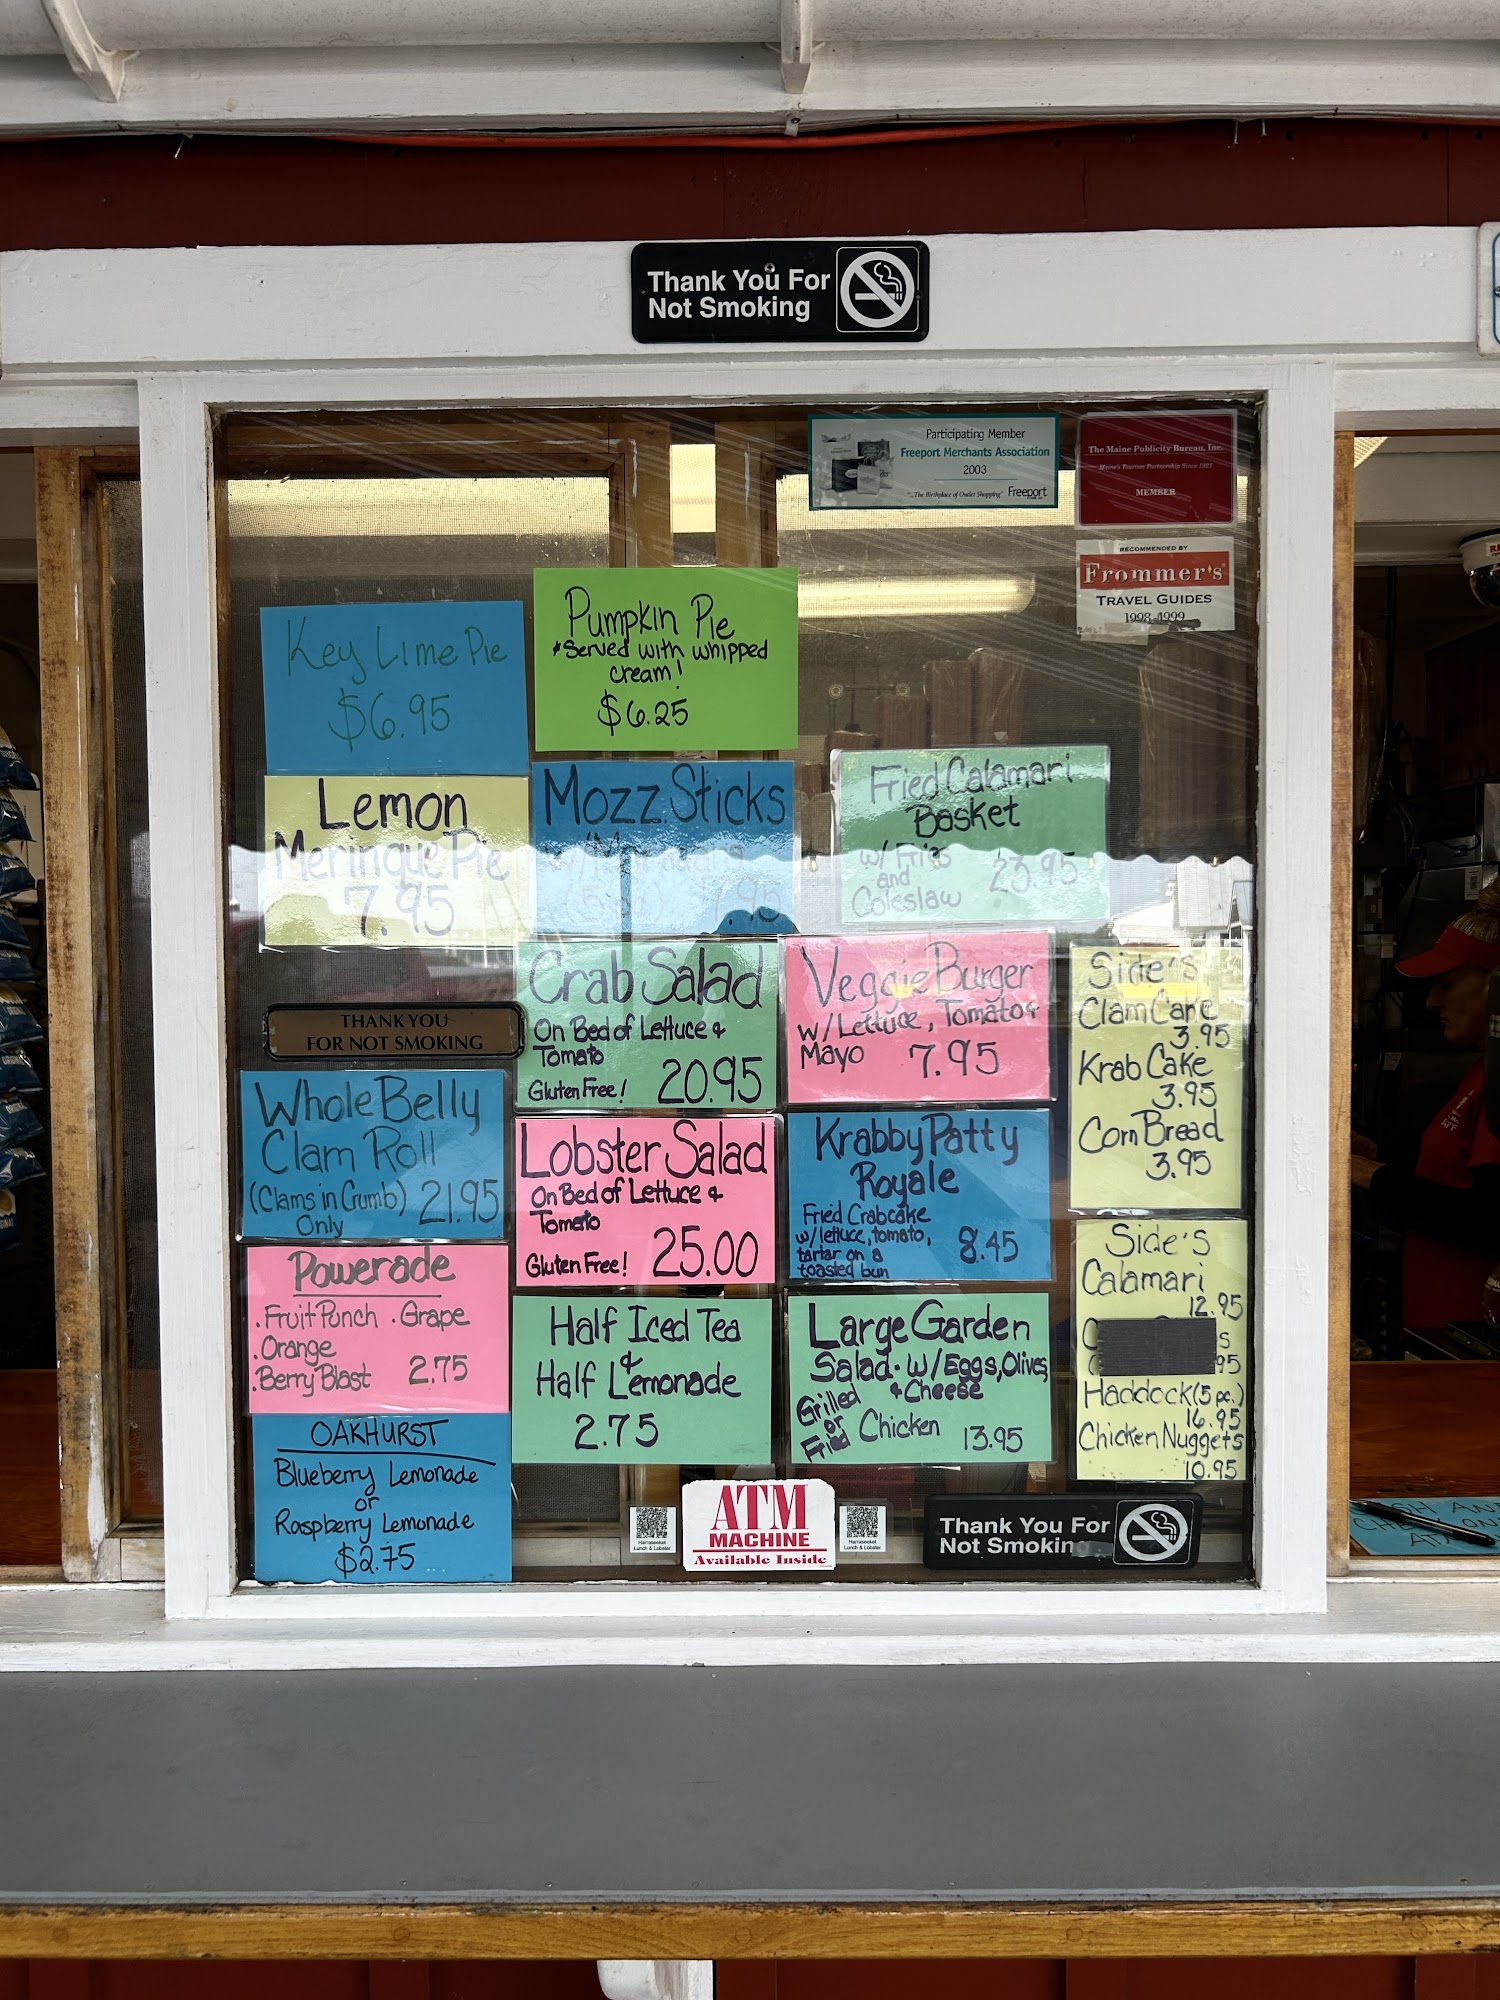 Thank You For
Not Smoking
Participating Member
Freeport Merchants Association
2003
"...The Birthplace of Outlet Shopping"
Freeport
The Maine Publicity Bureau, Inc.
Maine's Tourism Partnership Since 1921
MEMBER
RECOMMENDED BY
Frommer's
TRAVEL GUIDES
1998-1999
Key Lime Pie
$6.95
Pumpkin Pie
*Served with whipped
cream!
$6.25
Lemon
Meringue Pie
7.95
Mozz Sticks
7.95
Fried Calamari
Basket
w/ Fries
and
Coleslaw
23.95
THANK YOU
FOR NOT SMOKING
Crab Salad
On Bed of Lettuce &
Tomato
Gluten Free! 20.95
Veggie Burger
w/Lettuce, Tomato &
Mayo 7.95
Side's
Clam Cake
3.95
Krab Cake
3.95
Corn Bread
3.95
Whole Belly
Clam Roll
(Clams in Crumb) 21.95
Only
Lobster Salad
On Bed of Lettuce &
Tomato
Gluten Free! 25.00
Krabby Patty
Royale
Fried Crabcake
w/lettuce, tomato,
tartar on a
toasted bun
8.45
Side's
Calamari
12.95
C s
95
Haddock (5 pc.)
16.95
Chicken Nuggets
10.95
Powerade
.Fruit Punch .Grape
.Orange
.Berry Blast 2.75
Half Iced Tea
&
Half Lemonade
2.75
Large Garden
Salad - w/Eggs, Olives,
& Cheese
Grilled
or
Fried
Chicken 13.95
OAKHURST
Blueberry Lemonade
or
Raspberry Lemonade
$2.75
Harraseeket
Lunch & Lobster
ATM
MACHINE
Available Inside
Harraseeket
Lunch & Lobster
Thank You For
Not Smoking